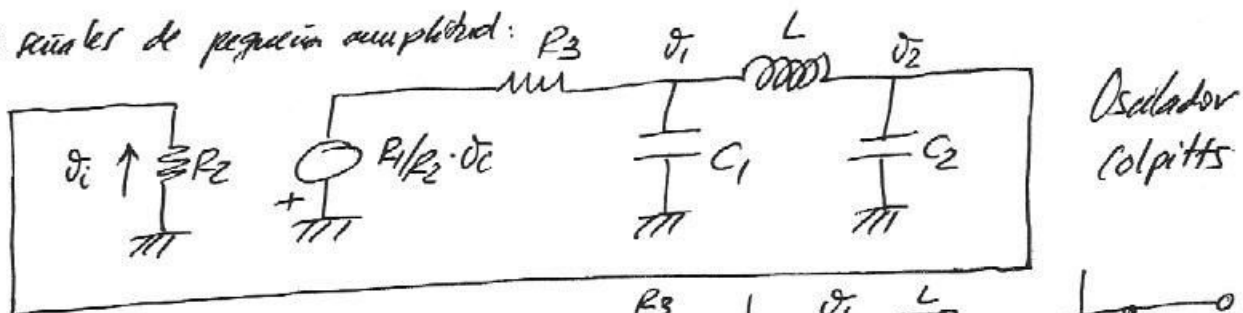 señales de pequeña amplitud:
R3 v1 L v2
vi R2 R1/R2·vi C1 C2 Oscilador
+ Colpitts
R3 v1 L